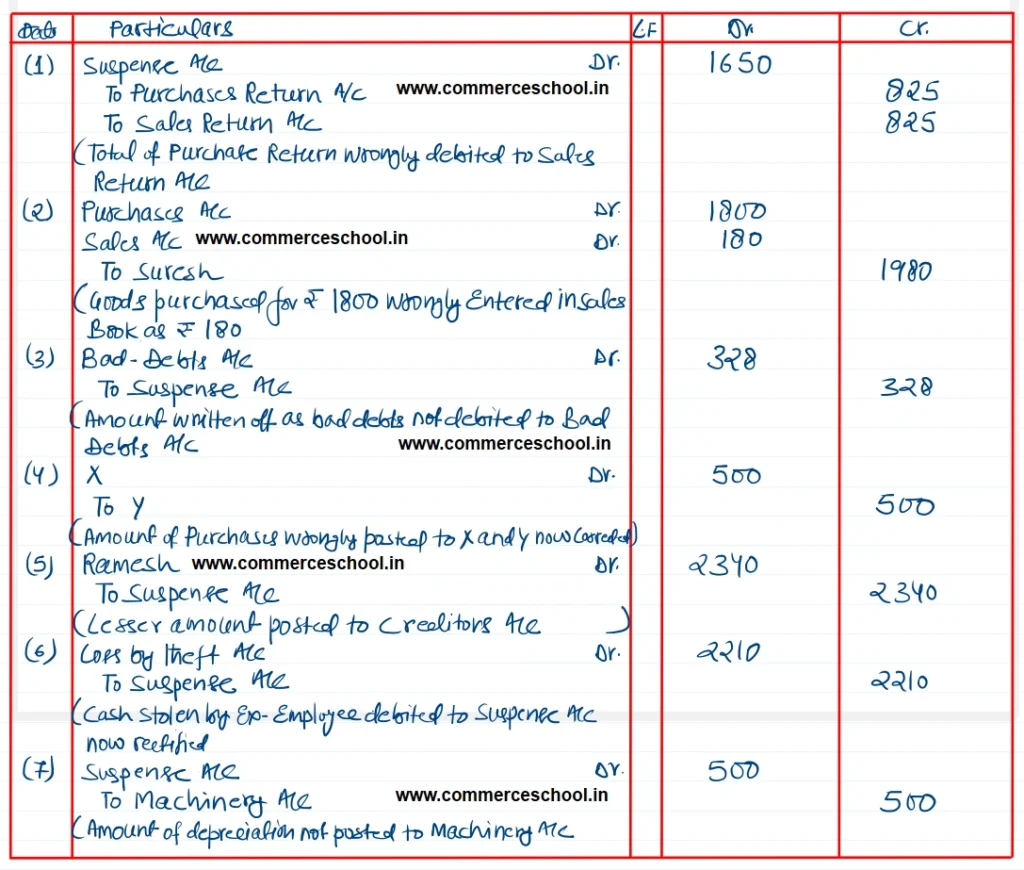 Date Particulars LF Dr. Cr.
(1) Suspense A/c Dr. 1650
To Purchases Return A/c www.commerceschool.in 825
To Sales Return A/c 825
(Total of Purchase Return wrongly debited to Sales
Return A/c
(2) Purchases A/c Dr. 1800
Sales A/c www.commerceschool.in Dr. 180
To Suresh 1980
(Goods purchased for ₹ 1800 wrongly Entered in sales
Book as ₹ 180
(3) Bad-Debts A/c Dr. 328
To Suspense A/c 328
(Amount written off as bad debts not debited to Bad
Debts A/c www.commerceschool.in
(4) X Dr. 500
To Y 500
(Amount of Purchases wrongly posted to X and Y now Corrected)
(5) Ramesh www.commerceschool.in Dr. 2340
To Suspense A/c 2340
(Lesser amount posted to Creditors A/c )
(6) Loss by theft A/c Dr. 2210
To Suspense A/c 2210
(Cash stolen by Ex-Employee debited to Suspense A/c
now rectified
(7) Suspense A/c Dr. 500
To Machinery A/c www.commerceschool.in 500
(Amount of depreciation not posted to Machinery A/c